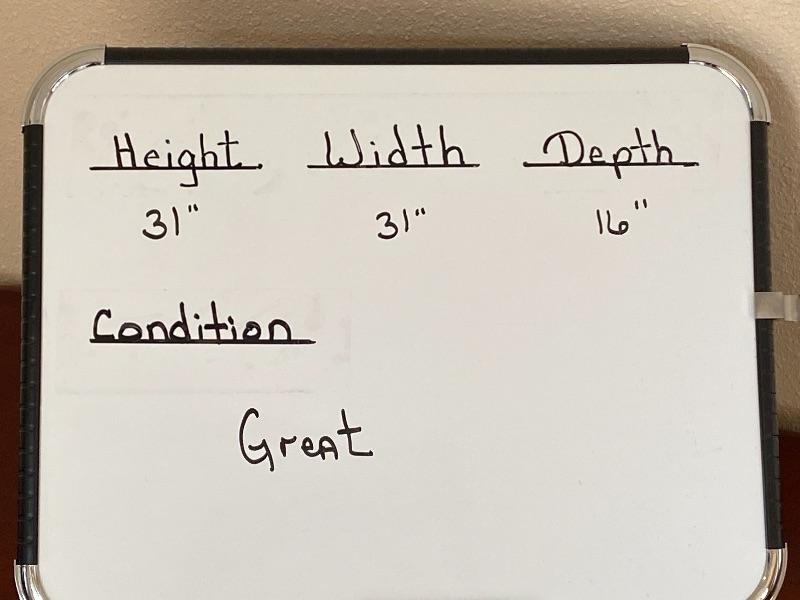 Height Width Depth
31" 31" 16"
Condition
Great